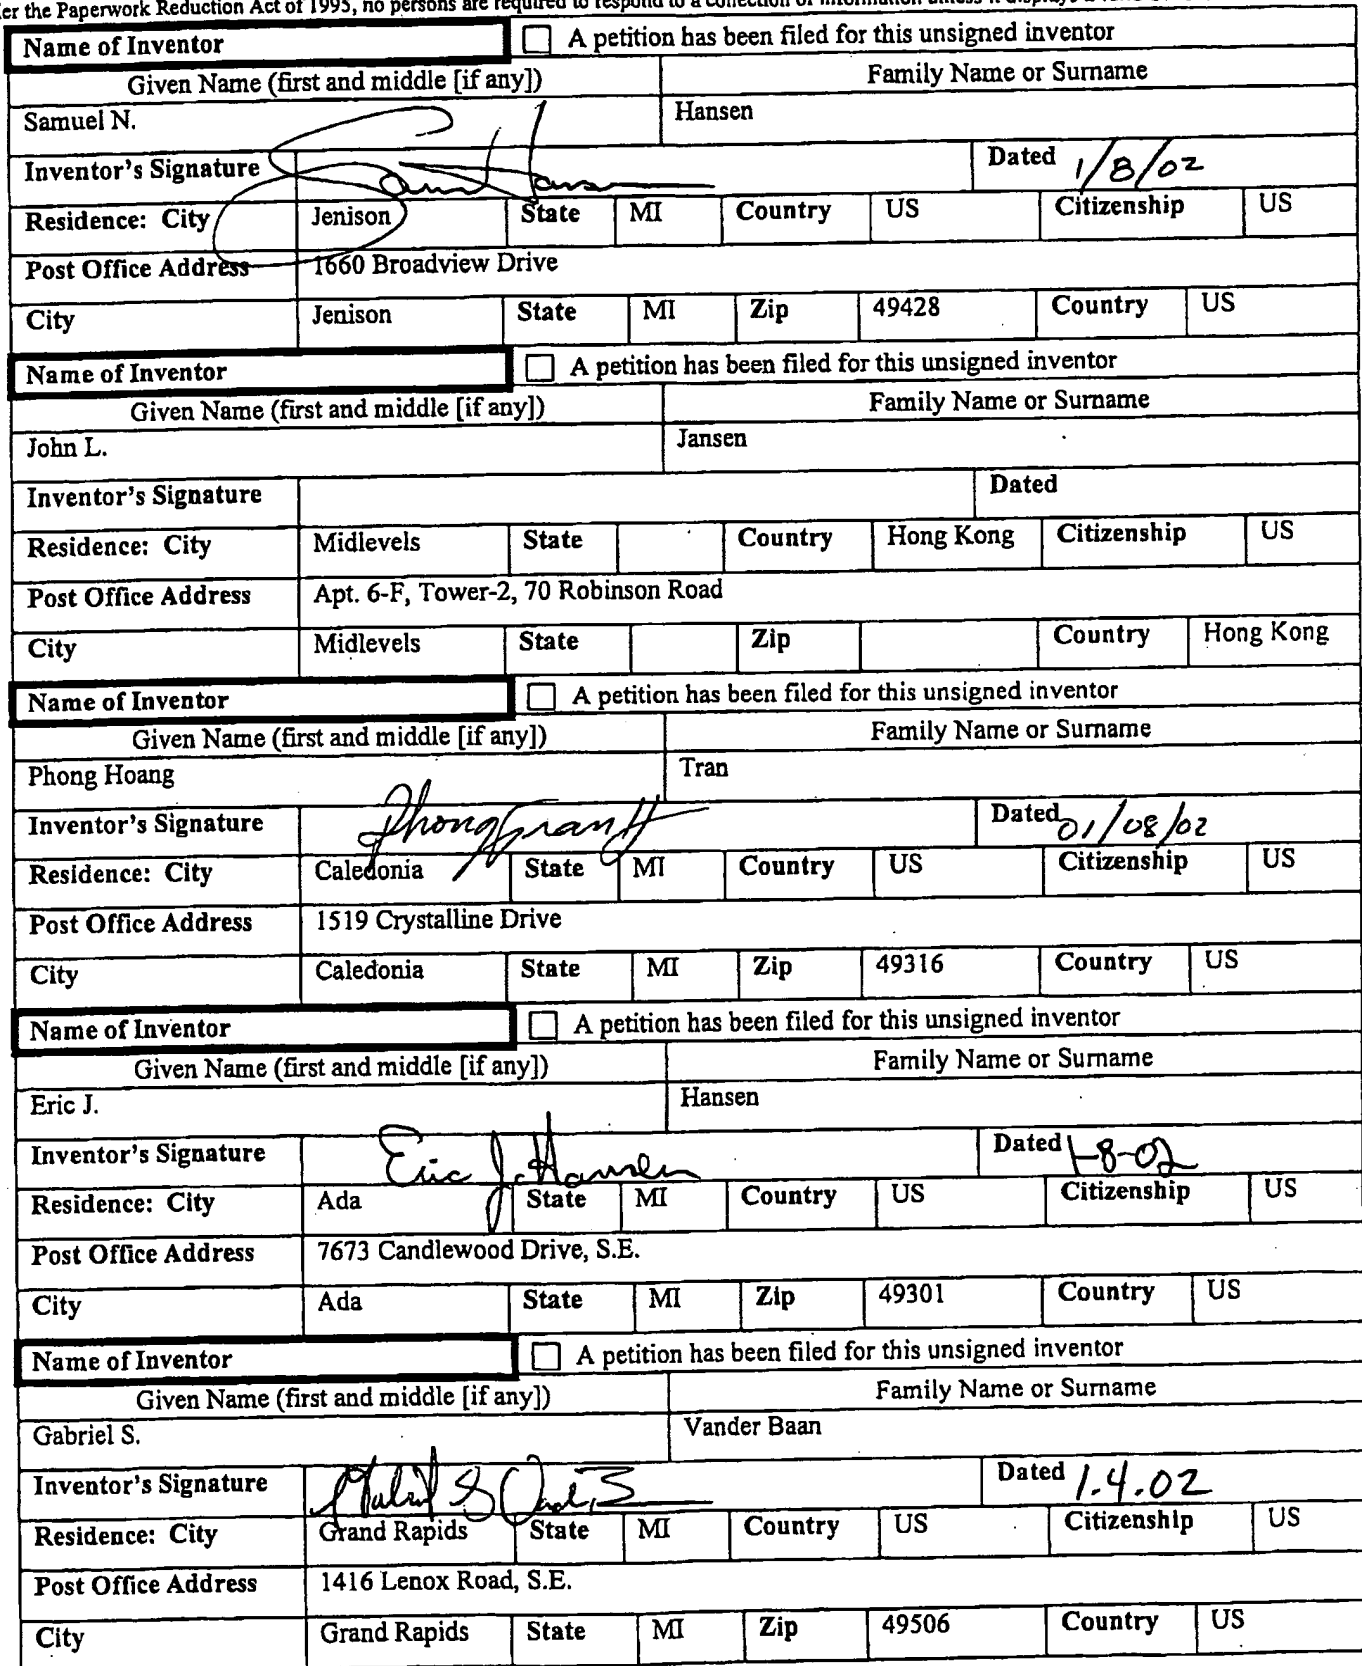 er the Paperwork Reduction Act of 1995, no persons are required to respond to a collection of information unless it displays a
Name of Inventor ☐ A petition has been filed for this unsigned inventor
Given Name (first and middle [if any]) Family Name or Surname
Samuel N. Hansen
Inventor's Signature Sam Hansen Dated 1/8/02
Residence: City Jenison State MI Country US Citizenship US
Post Office Address 1660 Broadview Drive
City Jenison State MI Zip 49428 Country US
Name of Inventor ☐ A petition has been filed for this unsigned inventor
Given Name (first and middle [if any]) Family Name or Surname
John L. Jansen
Inventor's Signature Dated
Residence: City Midlevels State Country Hong Kong Citizenship US
Post Office Address Apt. 6-F, Tower-2, 70 Robinson Road
City Midlevels State Zip Country Hong Kong
Name of Inventor ☐ A petition has been filed for this unsigned inventor
Given Name (first and middle [if any]) Family Name or Surname
Phong Hoang Tran
Inventor's Signature Phong Tran H Dated 01/08/02
Residence: City Caledonia State MI Country US Citizenship US
Post Office Address 1519 Crystalline Drive
City Caledonia State MI Zip 49316 Country US
Name of Inventor ☐ A petition has been filed for this unsigned inventor
Given Name (first and middle [if any]) Family Name or Surname
Eric J. Hansen
Inventor's Signature Eric J. Hansen Dated 1-8-02
Residence: City Ada State MI Country US Citizenship US
Post Office Address 7673 Candlewood Drive, S.E.
City Ada State MI Zip 49301 Country US
Name of Inventor ☐ A petition has been filed for this unsigned inventor
Given Name (first and middle [if any]) Family Name or Surname
Gabriel S. Vander Baan
Inventor's Signature Dated 1.4.02
Residence: City Grand Rapids State MI Country US Citizenship US
Post Office Address 1416 Lenox Road, S.E.
City Grand Rapids State MI Zip 49506 Country US